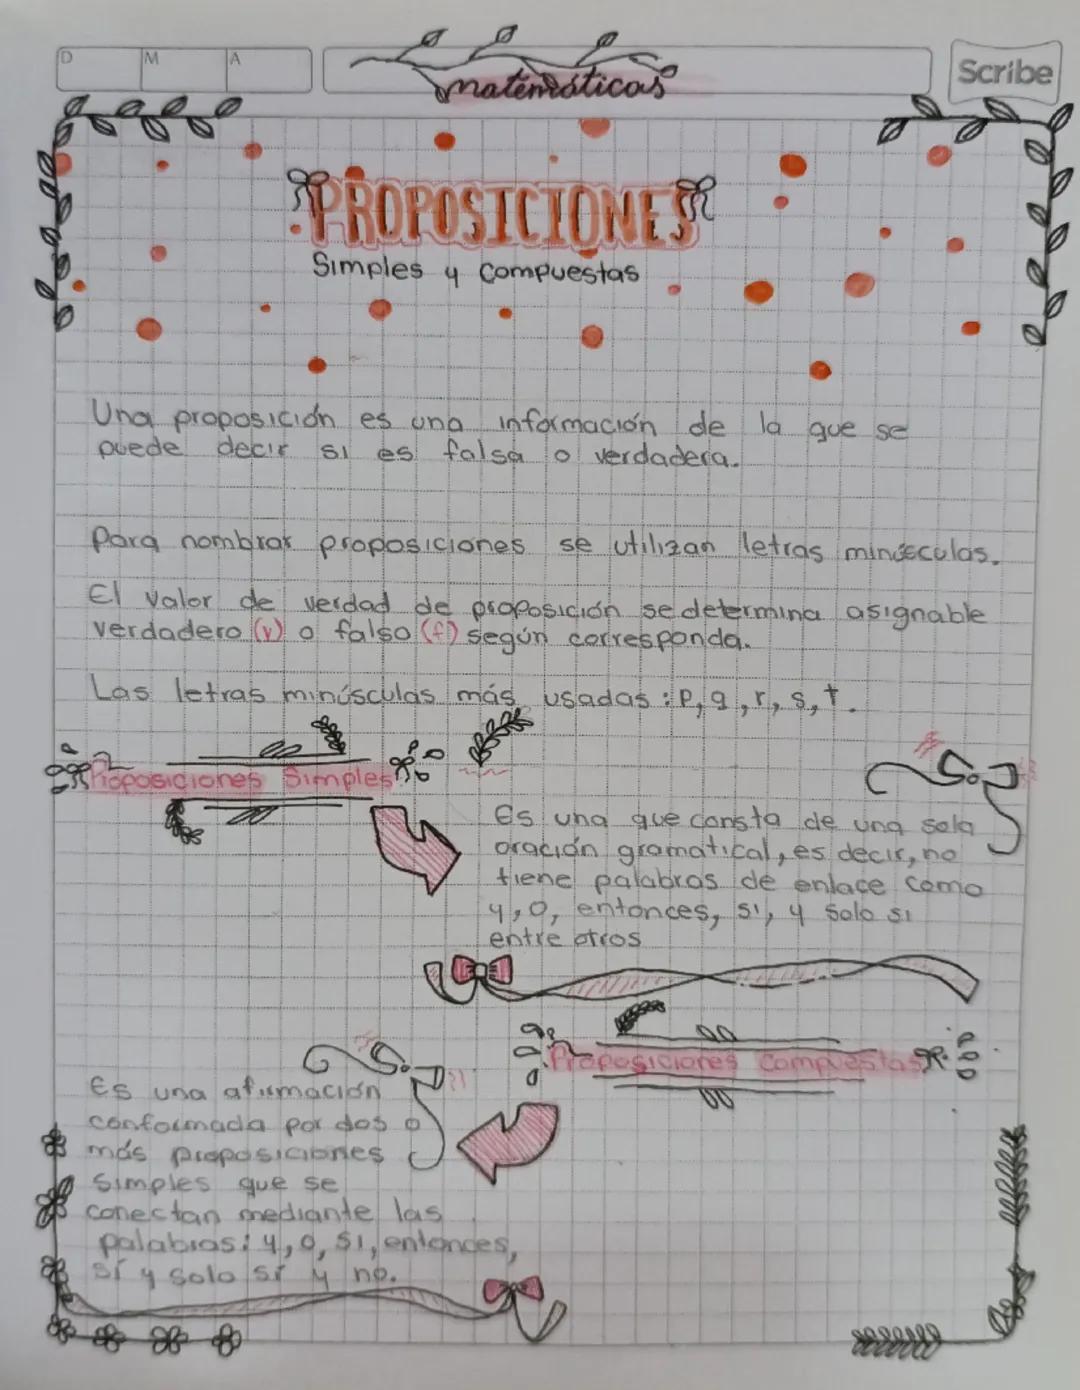 D M A
matemáticas
Scribe
PROPOSICIONES
Simples y compuestas
Una proposición es una información de la que se
puede decir si es falsa o verdadera.
Para nombrar proposiciones se utilizan letras minúsculas.
El valor de verdad de proposición se determina asignable
verdadero (v) o falso (f) según corresponda.
Las letras minúsculas más usadas: p, q, r, s, t.
Proposiciones Simples
Es una que consta de una sola
oración gramatical, es decir, no
tiene palabras de enlace como
y, o, entonces, si, y solo si
entre otros
Proposiciones compuestas
Es una afirmación
conformada por dos o
más proposiciones
simples que se
conectan mediante las
palabras: y, o, si, entonces,
sí y solo sí y no.